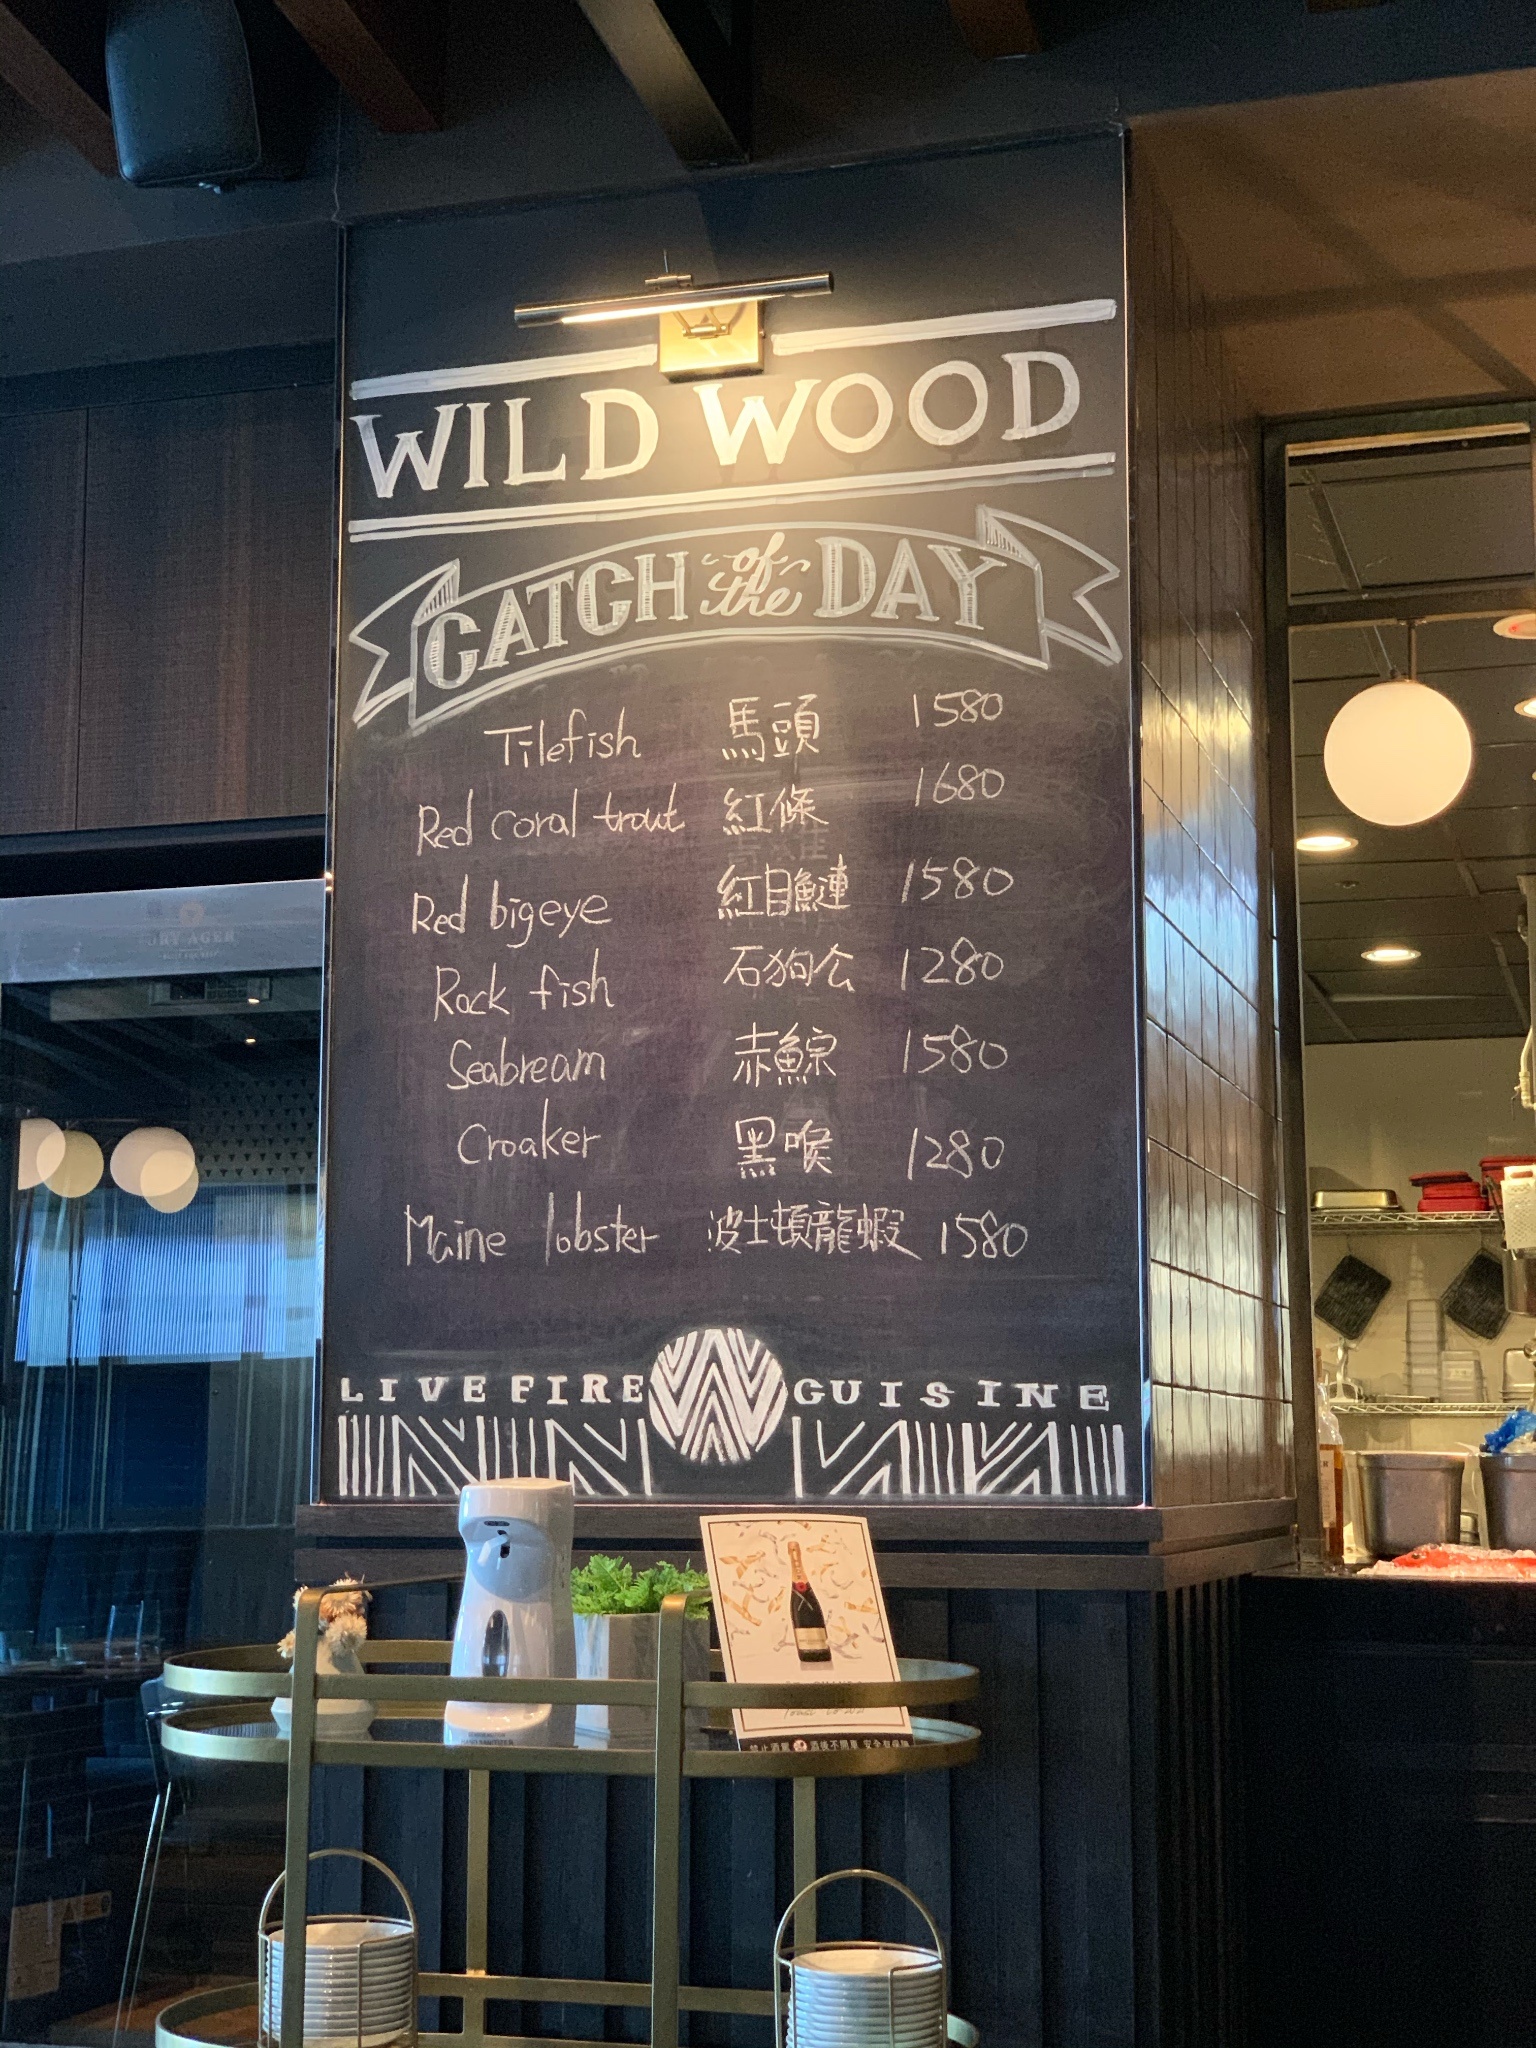 WILD WOOD
CATCH of the DAY
Tilefish 馬頭 1580
Red coral trout 紅條 1680
Red bigeye 紅目鰱 1580
Rock fish 石狗公 1280
Seabream 赤鯮 1580
Croaker 黑喉 1280
Maine lobster 波士頓龍蝦 1580
LIVE FIRE W CUISINE
DRY AGER
禁止酒駕 酒後不開車 安全有保障